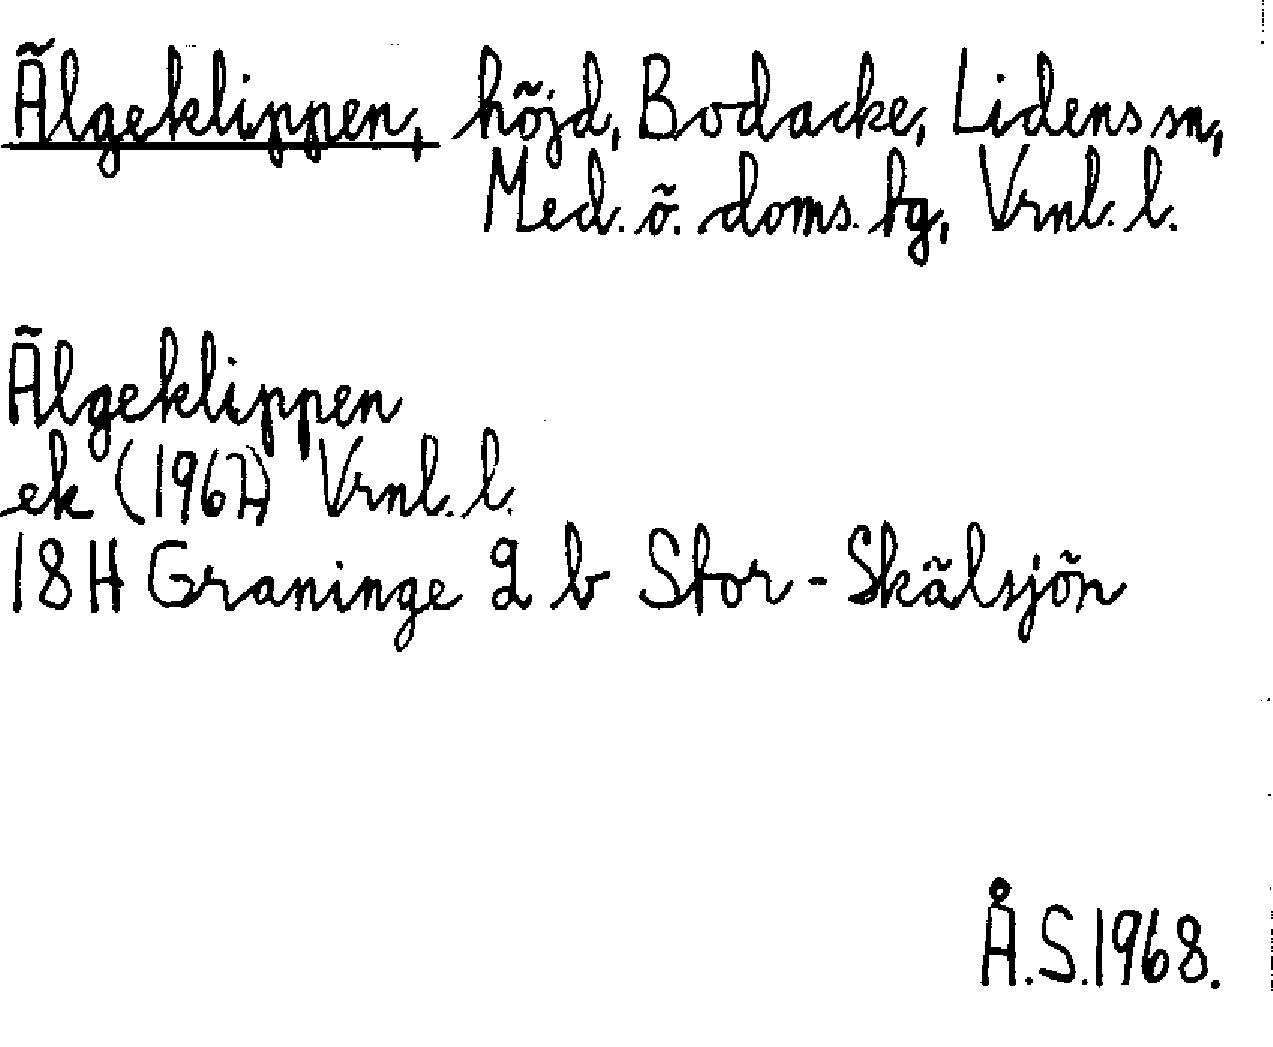 Älgeklippen, höjd, Bodacke, Lidens sn,
Med. ö. doms. hg, Vrnl. l.
Älgeklippen
ek (1967) Vrnl. l.
18H Graninge 2 b Stor-Skälsjön
Å.S.1968.